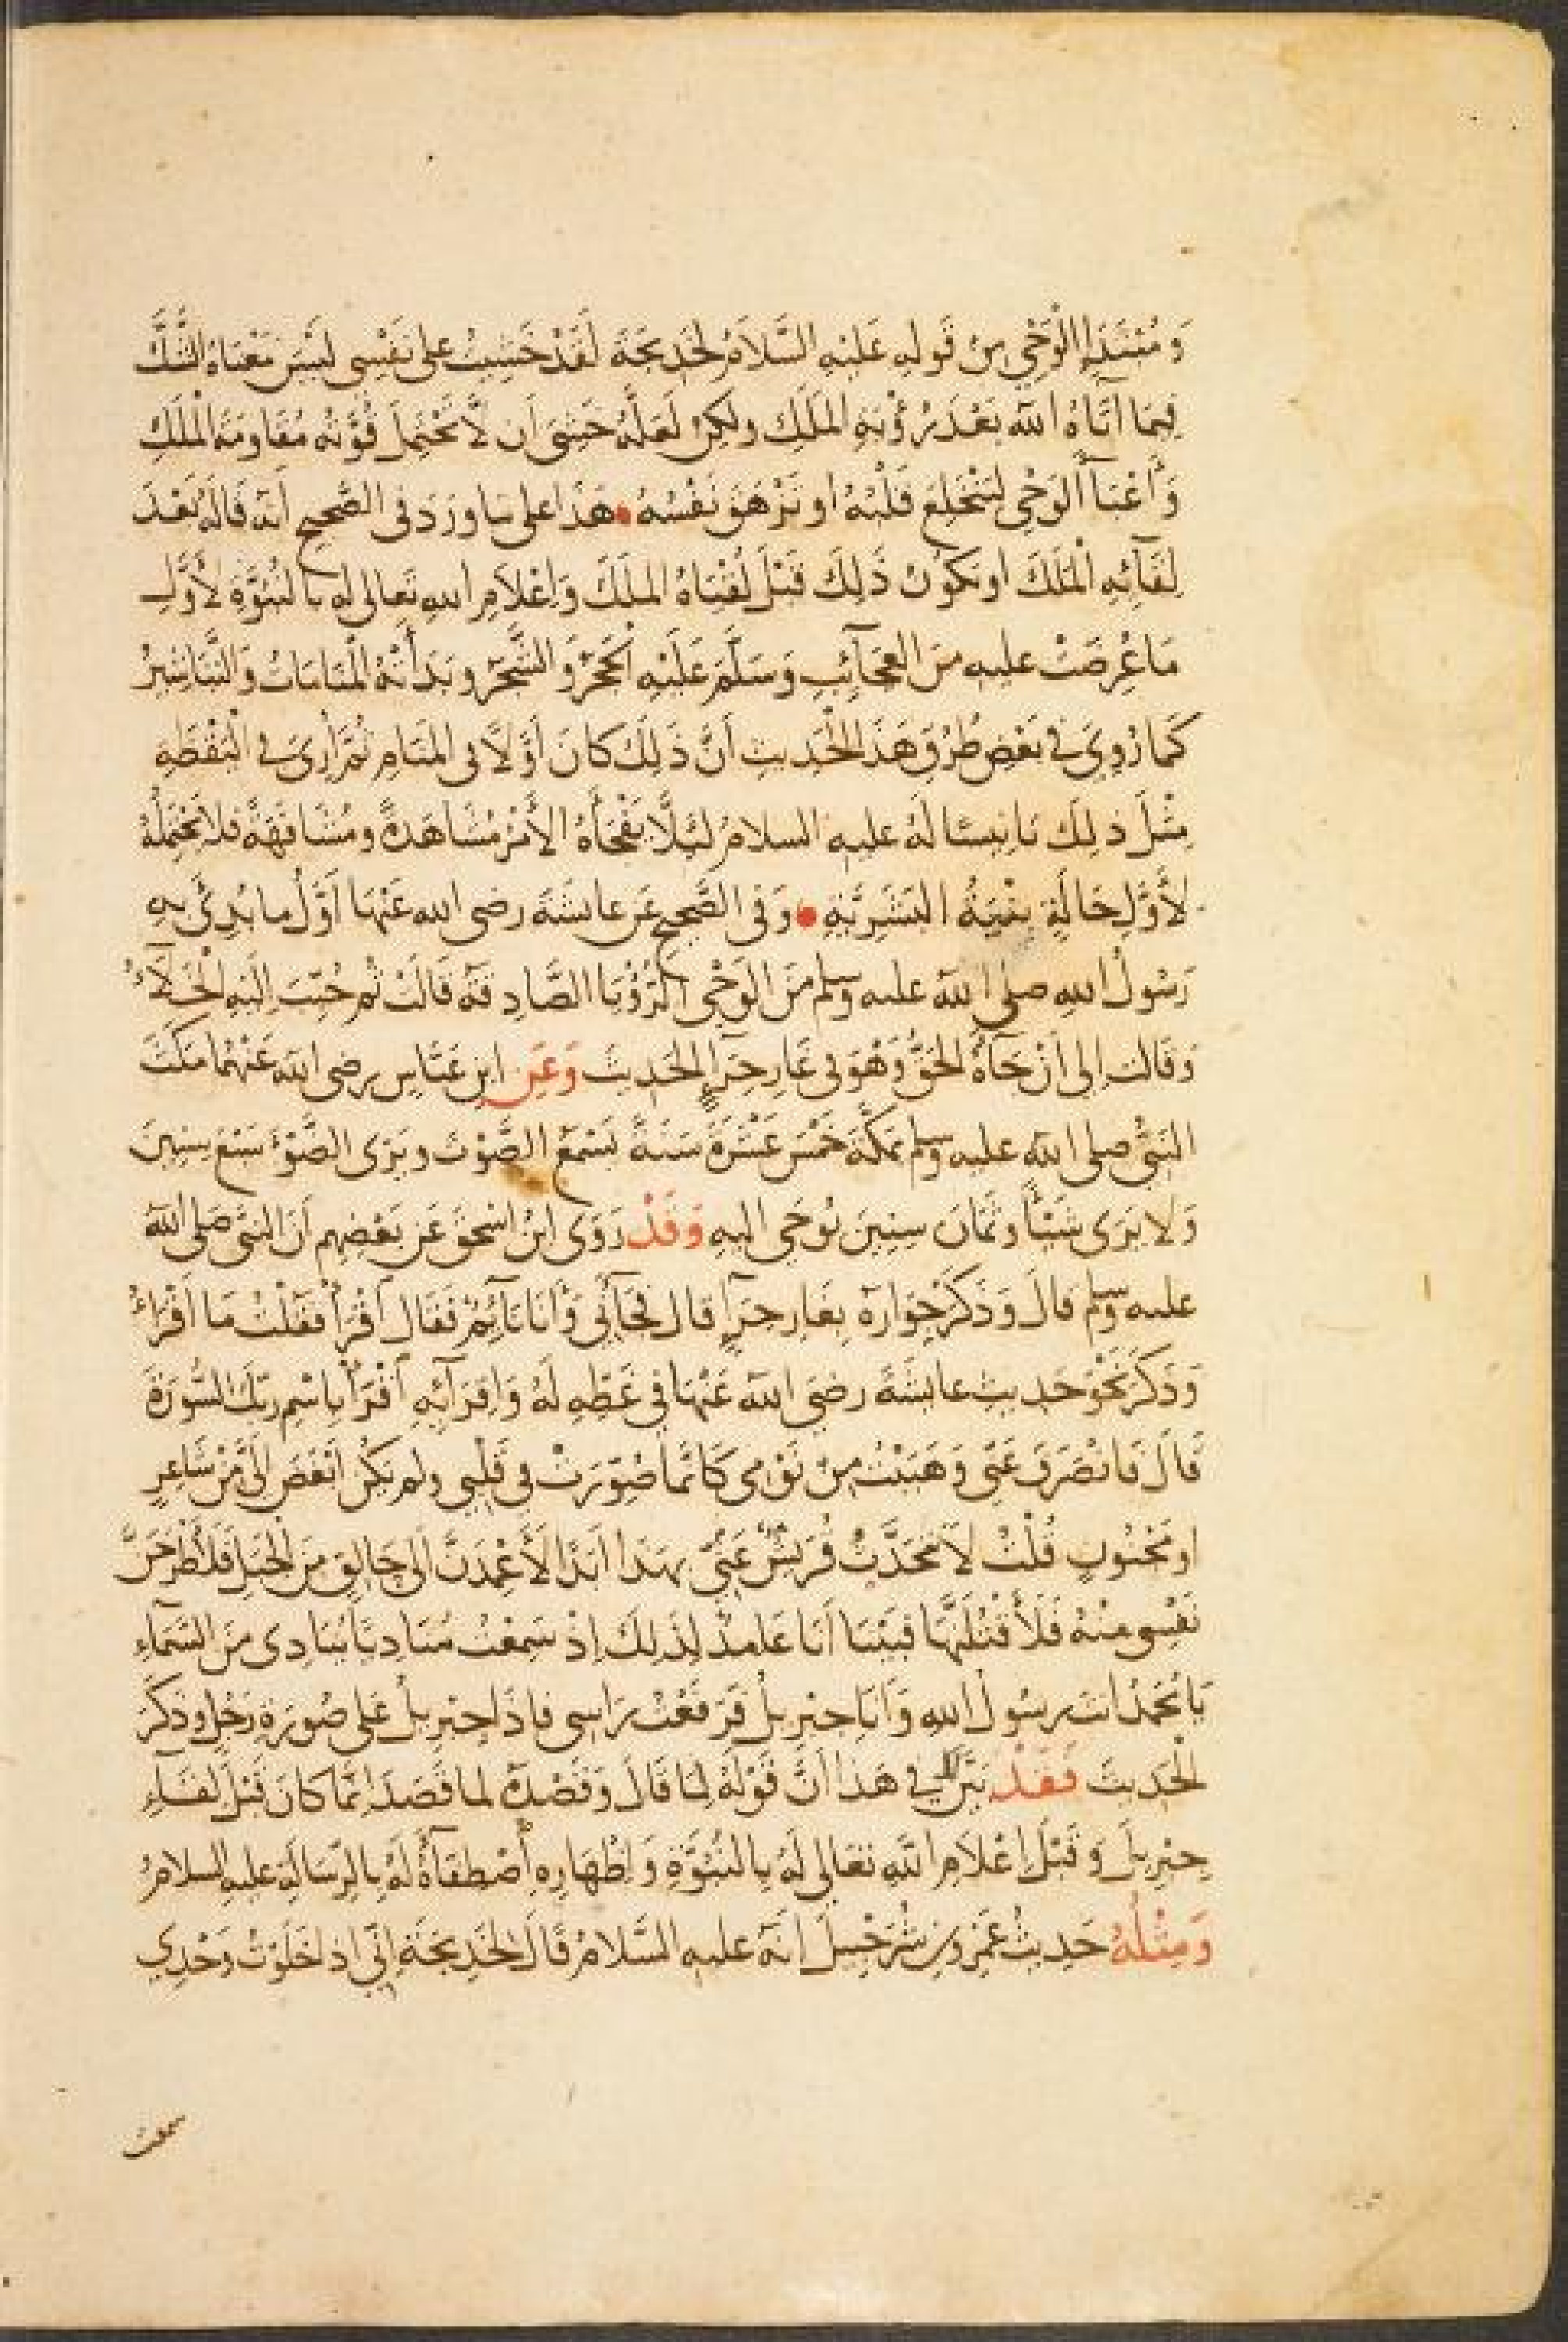 وَمُبْتَدَإِ الْوَحْيِ مِنْ قَولِهِ عَلَيْهِ السَّلَامُ لِخَدِيجَةَ لَقَدْ خَشِيتُ عَلَى نَفْسِي لَيْسَ مَعْنَاهُ الشَّكَّ
فِيمَا آتَاهُ اللهُ بَعْدَ رُؤْيَةِ الْمَلَكِ ولَكِنْ لَعَلَّهُ خَشِيَ أَن لَّا تَحْتَمِلَ قُوَّتُهُ مُقَاوَمَةَ الْمَلَكِ
وَأَعْبَآءَ الْوَحْيِ لِيَنْخَلِعَ قَلْبُهُ او تَزْهَقَ نَفْسُهُ • هَذَا على مَا وَرَدَ فى الصَّحِيحِ أَنَّهُ قَالَهُ بَعْدَ
لِقَآئِهِ الْمَلَكَ او يَكُونُ ذَلِكَ قَبْلَ لُقْيَاهُ الْمَلَكَ وَإِعْلَامِ اللهِ تَعالى لَهُ بالنُّبُوَّةِ لأَوَّلِ
مَا عُرِضَتْ عليهِ مِنَ العجَآئِبِ وَسَلَّمَ عَلَيْهِ الْحَجَرُ وَالشَّجَرُ وبَدَأَتْهُ الْمَنَامَاتُ وَالتَّبَاشِيرُ
كَمَا رُوِيَ فى بَعْضِ طُرُقِ هَذَا الْحَدِيثِ أَنَّ ذَلِكَ كَانَ أَوَّلاً فى المَنَامِ ثُمَّ أُرِىَ فى الْيَقْظَةِ
مِثْلَ ذلِكَ تَانِيسًا لَهُ عليهِ السلامُ لِئَلَّا يَفْجَأَهُ الأَمْرُ مُشَاهَدَةً ومُشَافَهَةً فلا تَحْتَمِلُهُ
لأَوَّلِ حَالَةٍ بِنْيَةُ الْبَشَرِيَّةِ • وَفى الصَّحِيحِ عَن عايشَةَ رضى الله عَنْهَا أَوَّلُ ما بُدِئَ بهِ
رَسُولُ اللهِ صلى اللهُ عليه وسلم مِنَ الْوَحْيِ الرُّؤْيَا الصَّادِقَةُ قَالَتْ ثُم حُبِّبَ إِلَيْهِ الْخَلَآءُ
وَقَالت إِلى أَنْ جَآءَهُ الْحَقُّ وَهُوَ فى غَارِ حِرَآءٍ الْحَدِيثَ وَعَنِ ابنِ عَبَّاسٍ رضى اللهُ عَنْهُمَا مَكَثَ
النَّبِيُّ صلى اللهُ عليهِ وسلم بمَكَّةَ خَمْسَ عَشْرَةَ سَنَةً يَسْمَعُ الصَّوْتَ ويَرَى الضَّوْءَ سَبْعَ سِنِينَ
وَلا يَرَى شَيْئًا وثَمَانَ سِنِينَ يُوحَى اليهِ وَقَدْ رَوَى ابنُ اسْحَقَ عَن بَعْضِهِم أَنَ النَّبِيَّ صَلى اللهُ
عليهِ وسلم قالَ وَذَكَرَ جِوَارَهُ بِغَارِ حِرَآءٍ قال فَجَآءَنِي وَأَنَا نَآئِمٌ فَقَالَ اقْرَأْ فَقُلْتُ مَا اقْرَاءُ
وَذَكَرَ نَحْوَ حَدِيثِ عايشَةَ رضىَ اللهُ عَنْهَا فى غَطِّهِ لَهُ وَاقرَآئِهِ اقْرَأْ بِاسْمِ رَبِّكَ السُّورَةَ
قَالَ فَانْصَرَفَ عَنِّى وَهَبَبْتُ مِنْ نَوْمِى كَانَّمَا صُوِّرَتْ فِي قَلْبِي ولم يَكُن ابْغَضَ الَىَّ مِنْ شَاعِرٍ
او مَجْنُونٍ قُلْتُ لَا تَحَدَّثُ قُرَيْشٌ عَنِّى بهَذَا ابَدًا لأَعْمِدَنَّ الَى حَالِقٍ مِنَ الْجَبَلِ فَلأَطْرَحَنَّ
نَفْسِى مِنْهُ فَلَأَقْتُلَنَّهَا فَبَيْنَا أَنَا عَامِدٌ لِذَلِكَ إِذْ سَمِعْتُ مُنَادِيًا يُنَادِى مِنَ السَّمَآءِ
يَا مُحَمَّدُ انتَ رسُولُ اللهِ وَأَنَا جِبْرِيلُ فَرَفَعْتُ رَاسِى فاذَا جِبْرِيلُ عَلى صُورَةِ رَجُلٍ وذَكَرَ
الْحَدِيثَ فَقَدْ بَيَّنَ لَكَ فى هَذا انَّ قَوْلَهُ لِمَا قَالَ وَقَصْدَهُ لما قَصَدَ إنَّمَا كانَ قَبْلَ لِقَآءِ
جِبْرِيلَ وَقَبْلَ اعْلَامِ اللهِ تعَالى لَهُ بِالنُّبُوَّةِ وَاِظْهَارِهِ أَصْطِفَآءَهُ لَهُ بِالرِّسَالَةِ عليهِ السلامُ
وَمِثْلُهُ حَدِيثُ عَمْرِو بنِ شُرَحْبِيلَ انَّهُ عليهِ السَّلامُ قَالَ لِخَدِيجَةَ إِنِّي اذا خَلَوْتُ وَحْدِي
سمعت